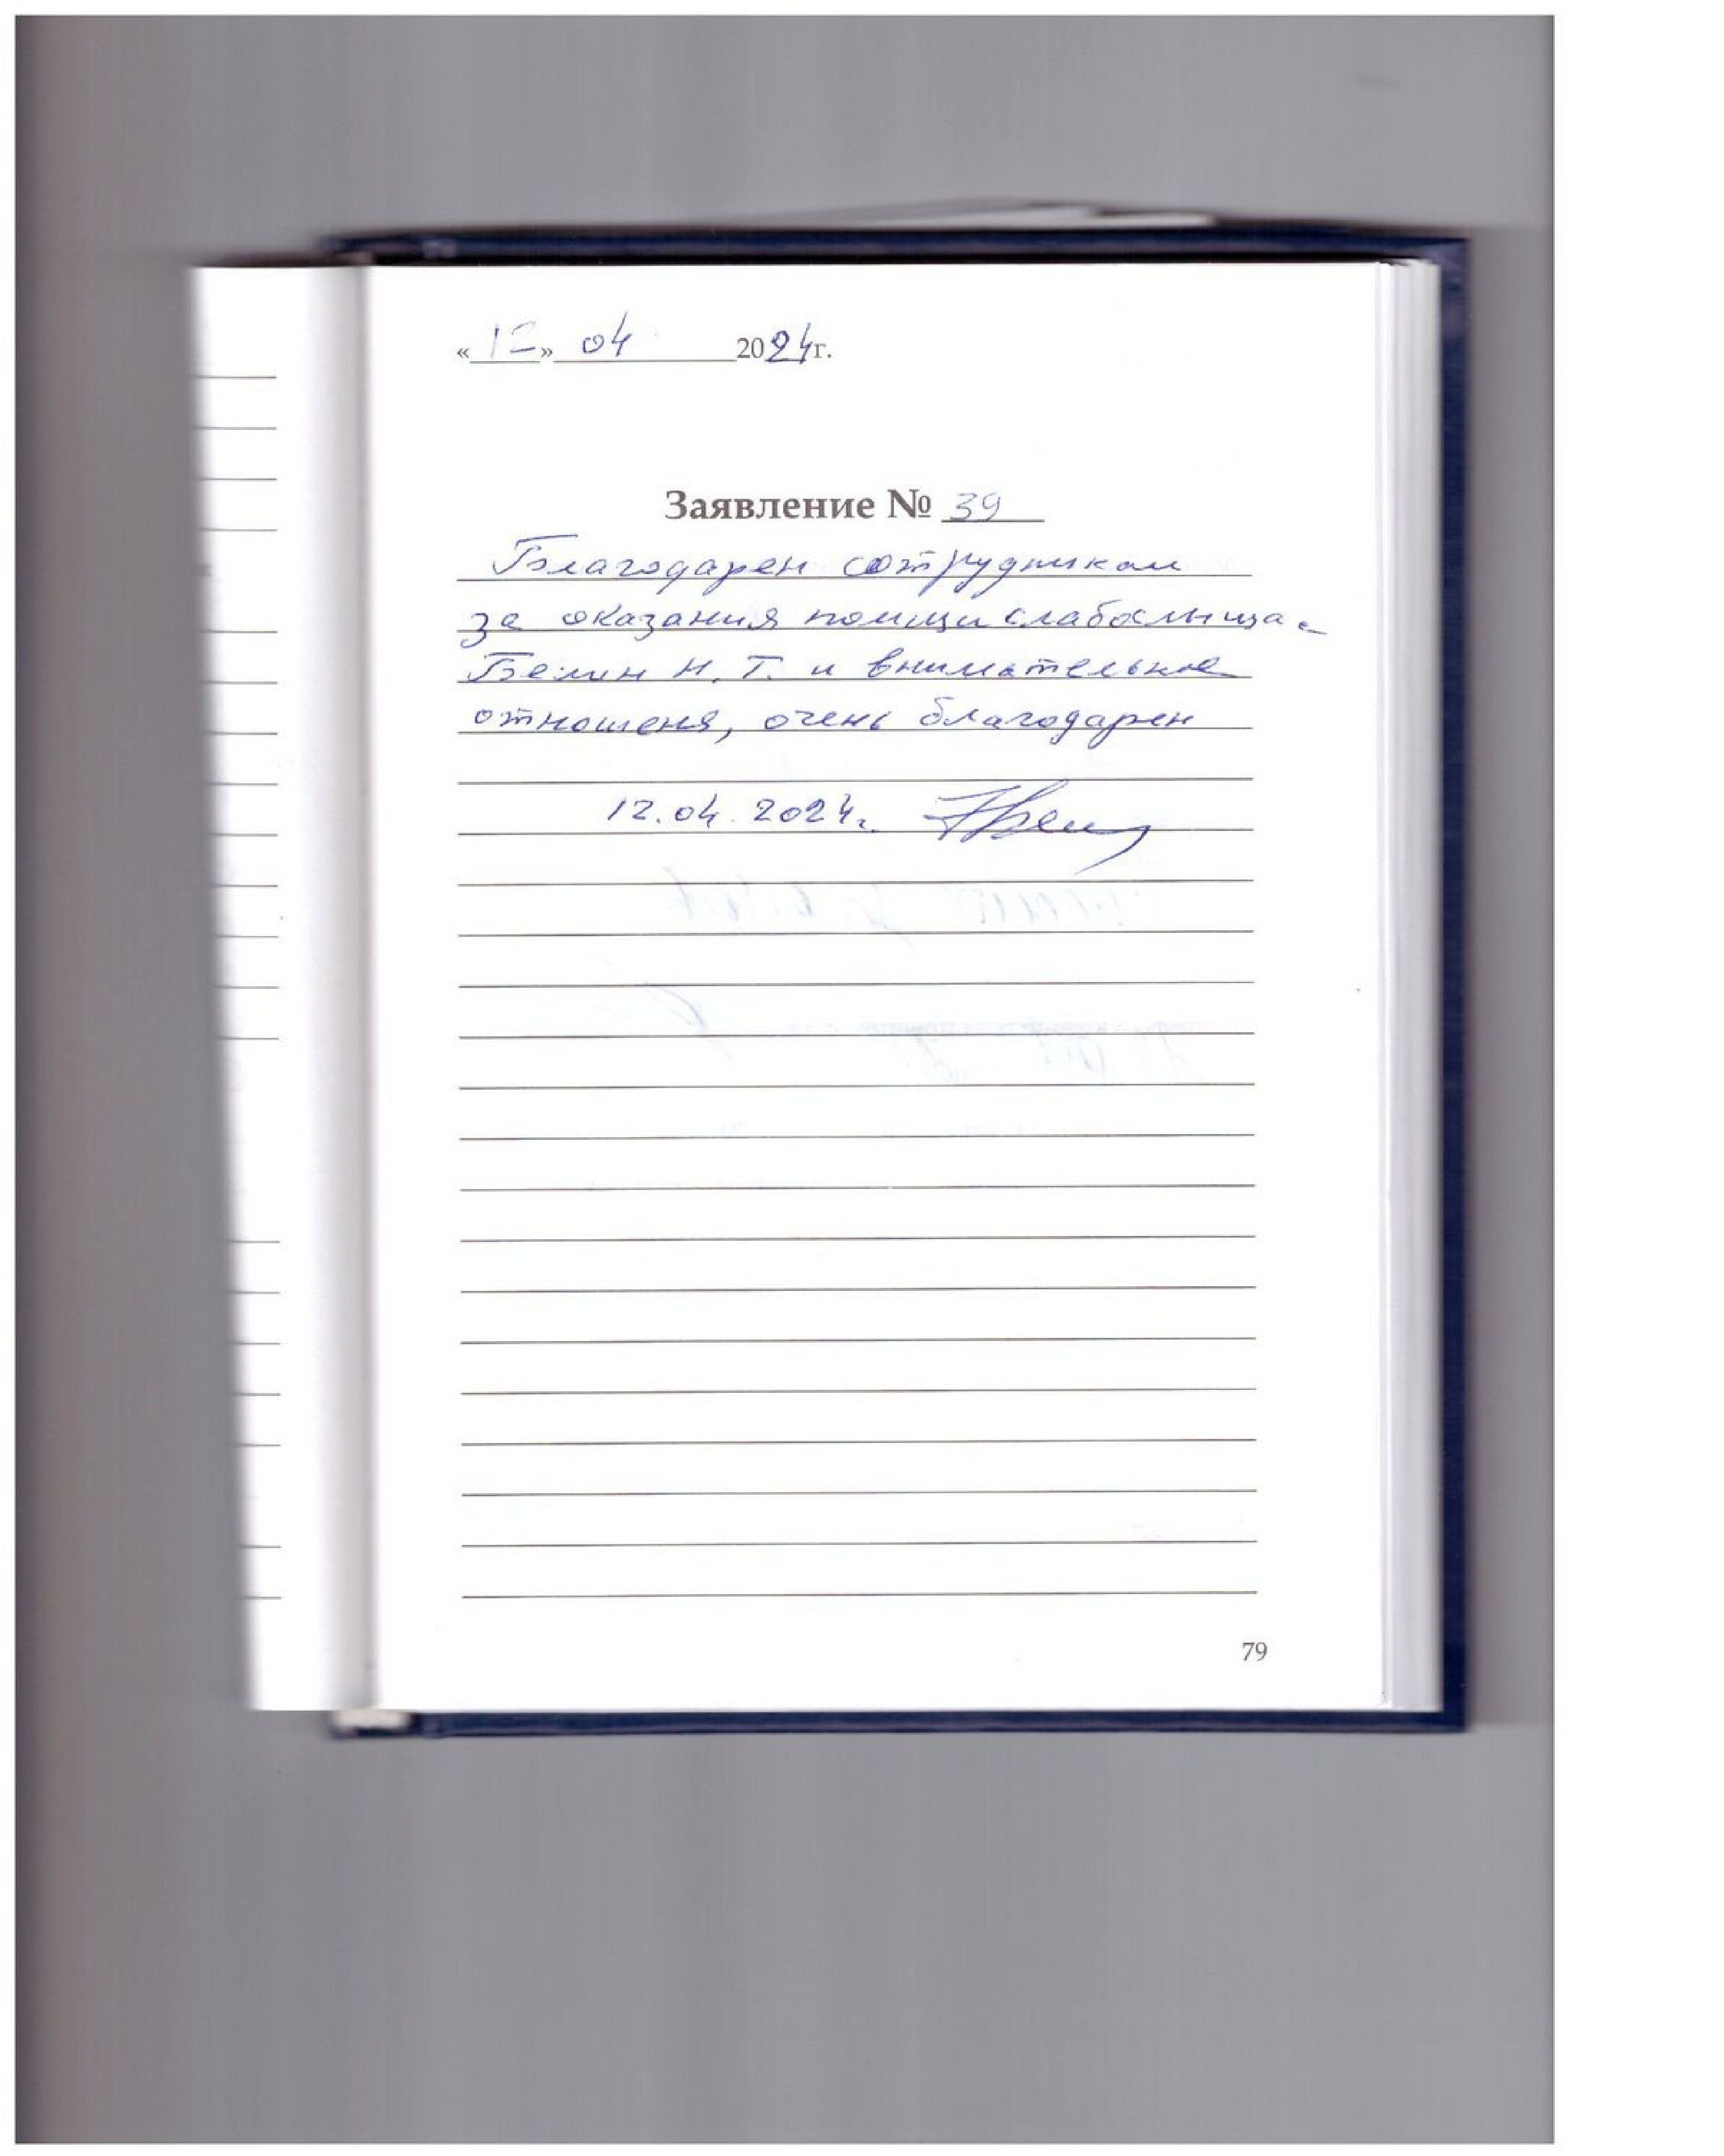 «12» 04 2024г.
Заявление № 39
Благодарен сотрудникам
за оказания помищи слабослыща-
Белин Н. Т. и внимательное
отношеня, очень благодарен
12.04.2024г.
79